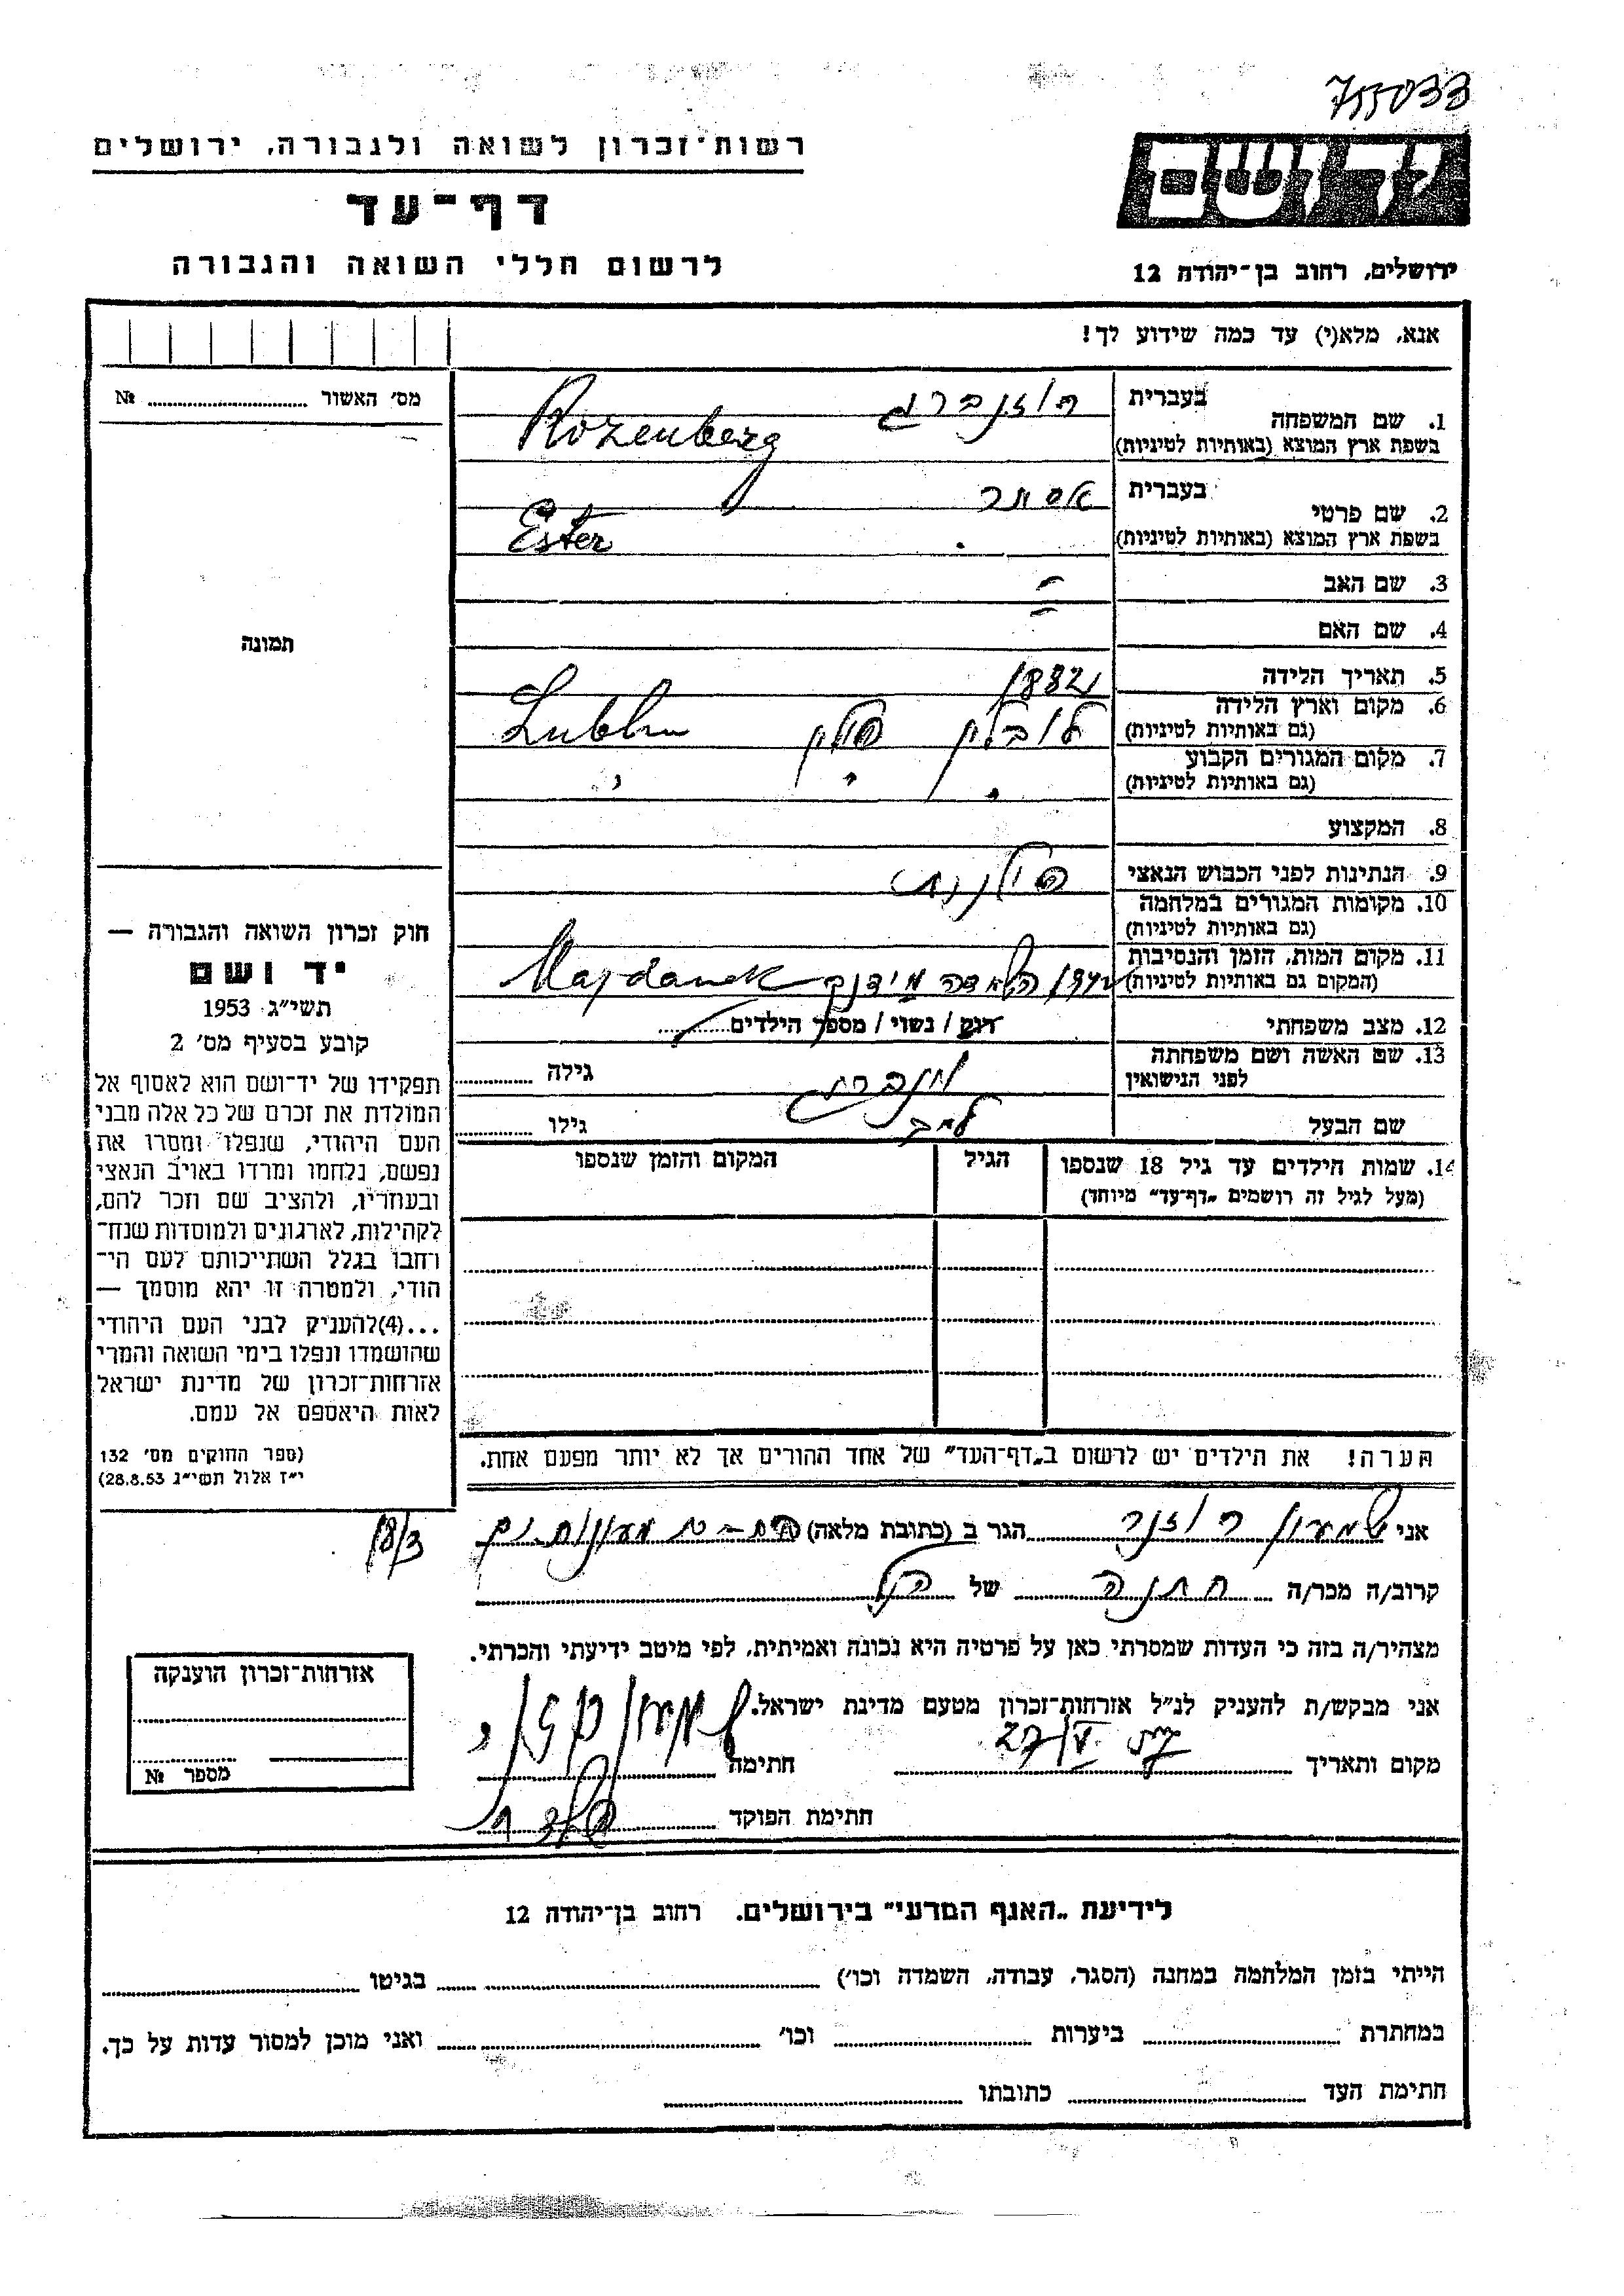 755033
רשות־זכרון לשואה ולגבורה, ירושלים
ידושם
דף־עד
לרשום חללי השואה והגבורה
ירושלים, רחוב בן־יהודה 12
אנא, מלא(י) עד כמה שידוע לך!
מס' האשור № 
1. שם המשפחה
בעברית רוזנברג
בשפת ארץ המוצא (באותיות לטיניות) Rozenberg
2. שם פרטי
בעברית אסתר
בשפת ארץ המוצא (באותיות לטיניות) Ester
3. שם האב -
4. שם האם -
תמונה
5. תאריך הלידה 1882
6. מקום וארץ הלידה
(גם באותיות לטיניות) לובלין פולין Lublin
7. מקום המגורים הקבוע
(גם באותיות לטיניות) " " "
8. המקצוע
9. הנתינות לפני הכבוש הנאצי פולנית
10. מקומות המגורים במלחמה
(גם באותיות לטיניות)
11. מקום המות, הזמן והנסיבות
(המקום גם באותיות לטיניות) מידנק Majdanek
12. מצב משפחתי רוק / נשוי / מספר הילדים
13. שם האשה ושם משפחתה
לפני הנישואין גילה
שם הבעל לייב גילו
14. שמות הילדים עד גיל 18 שנספו
(מעל לגיל זה רושמים „דף־עד" מיוחד)
הגיל
המקום והזמן שנספו
חוק זכרון השואה והגבורה —
יד ושם
תשי"ג 1953
קובע בסעיף מס' 2
תפקידו של יד־ושם הוא לאסוף אל
המולדת את זכרם של כל אלה מבני
העם היהודי, שנפלו ומסרו את
נפשם, נלחמו ומרדו באויב הנאצי
ובעוזריו, ולהציב שם וזכר להם,
לקהילות, לארגונים ולמוסדות שנח־
רחבו בגלל השתייכותם לעם הי־
הודי, ולמטרה זו יהא מוסמך —
...(4)להעניק לבני העם היהודי
שהושמדו ונפלו בימי השואה והמרי
אזרחות־זכרון של מדינת ישראל
לאות היאספם אל עמם.
(ספר החוקים מס' 132
י"ז אלול תשי"ג 28.8.53)
הערה! את הילדים יש לרשום ב„דף־העד" של אחד ההורים אך לא יותר מפעם אחת.
אני שמעון רוזנר הגר ב (כתובת מלאה) 18/3
קרוב/ה מכר/ה חתנה של הנ"ל
מצהיר/ה בזה כי העדות שמסרתי כאן על פרטיה היא נכונה ואמיתית, לפי מיטב ידיעתי והכרתי.
אני מבקש/ת להעניק לנ"ל אזרחות־זכרון מטעם מדינת ישראל.
מקום ותאריך חתימה
חתימת הפוקד
אזרחות־זכרון הוענקה
מספר №
לידיעת „האגף המדעי" בירושלים. רחוב בן־יהודה 12
הייתי בזמן המלחמה במחנה (הסגר, עבודה, השמדה וכו') בגיטו
במחתרת ביערות וכו' ואני מוכן למסור עדות על כך.
חתימת העד כתובתו